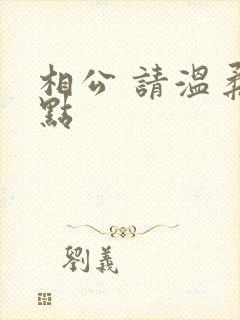 相公 請溫柔
點
劉義